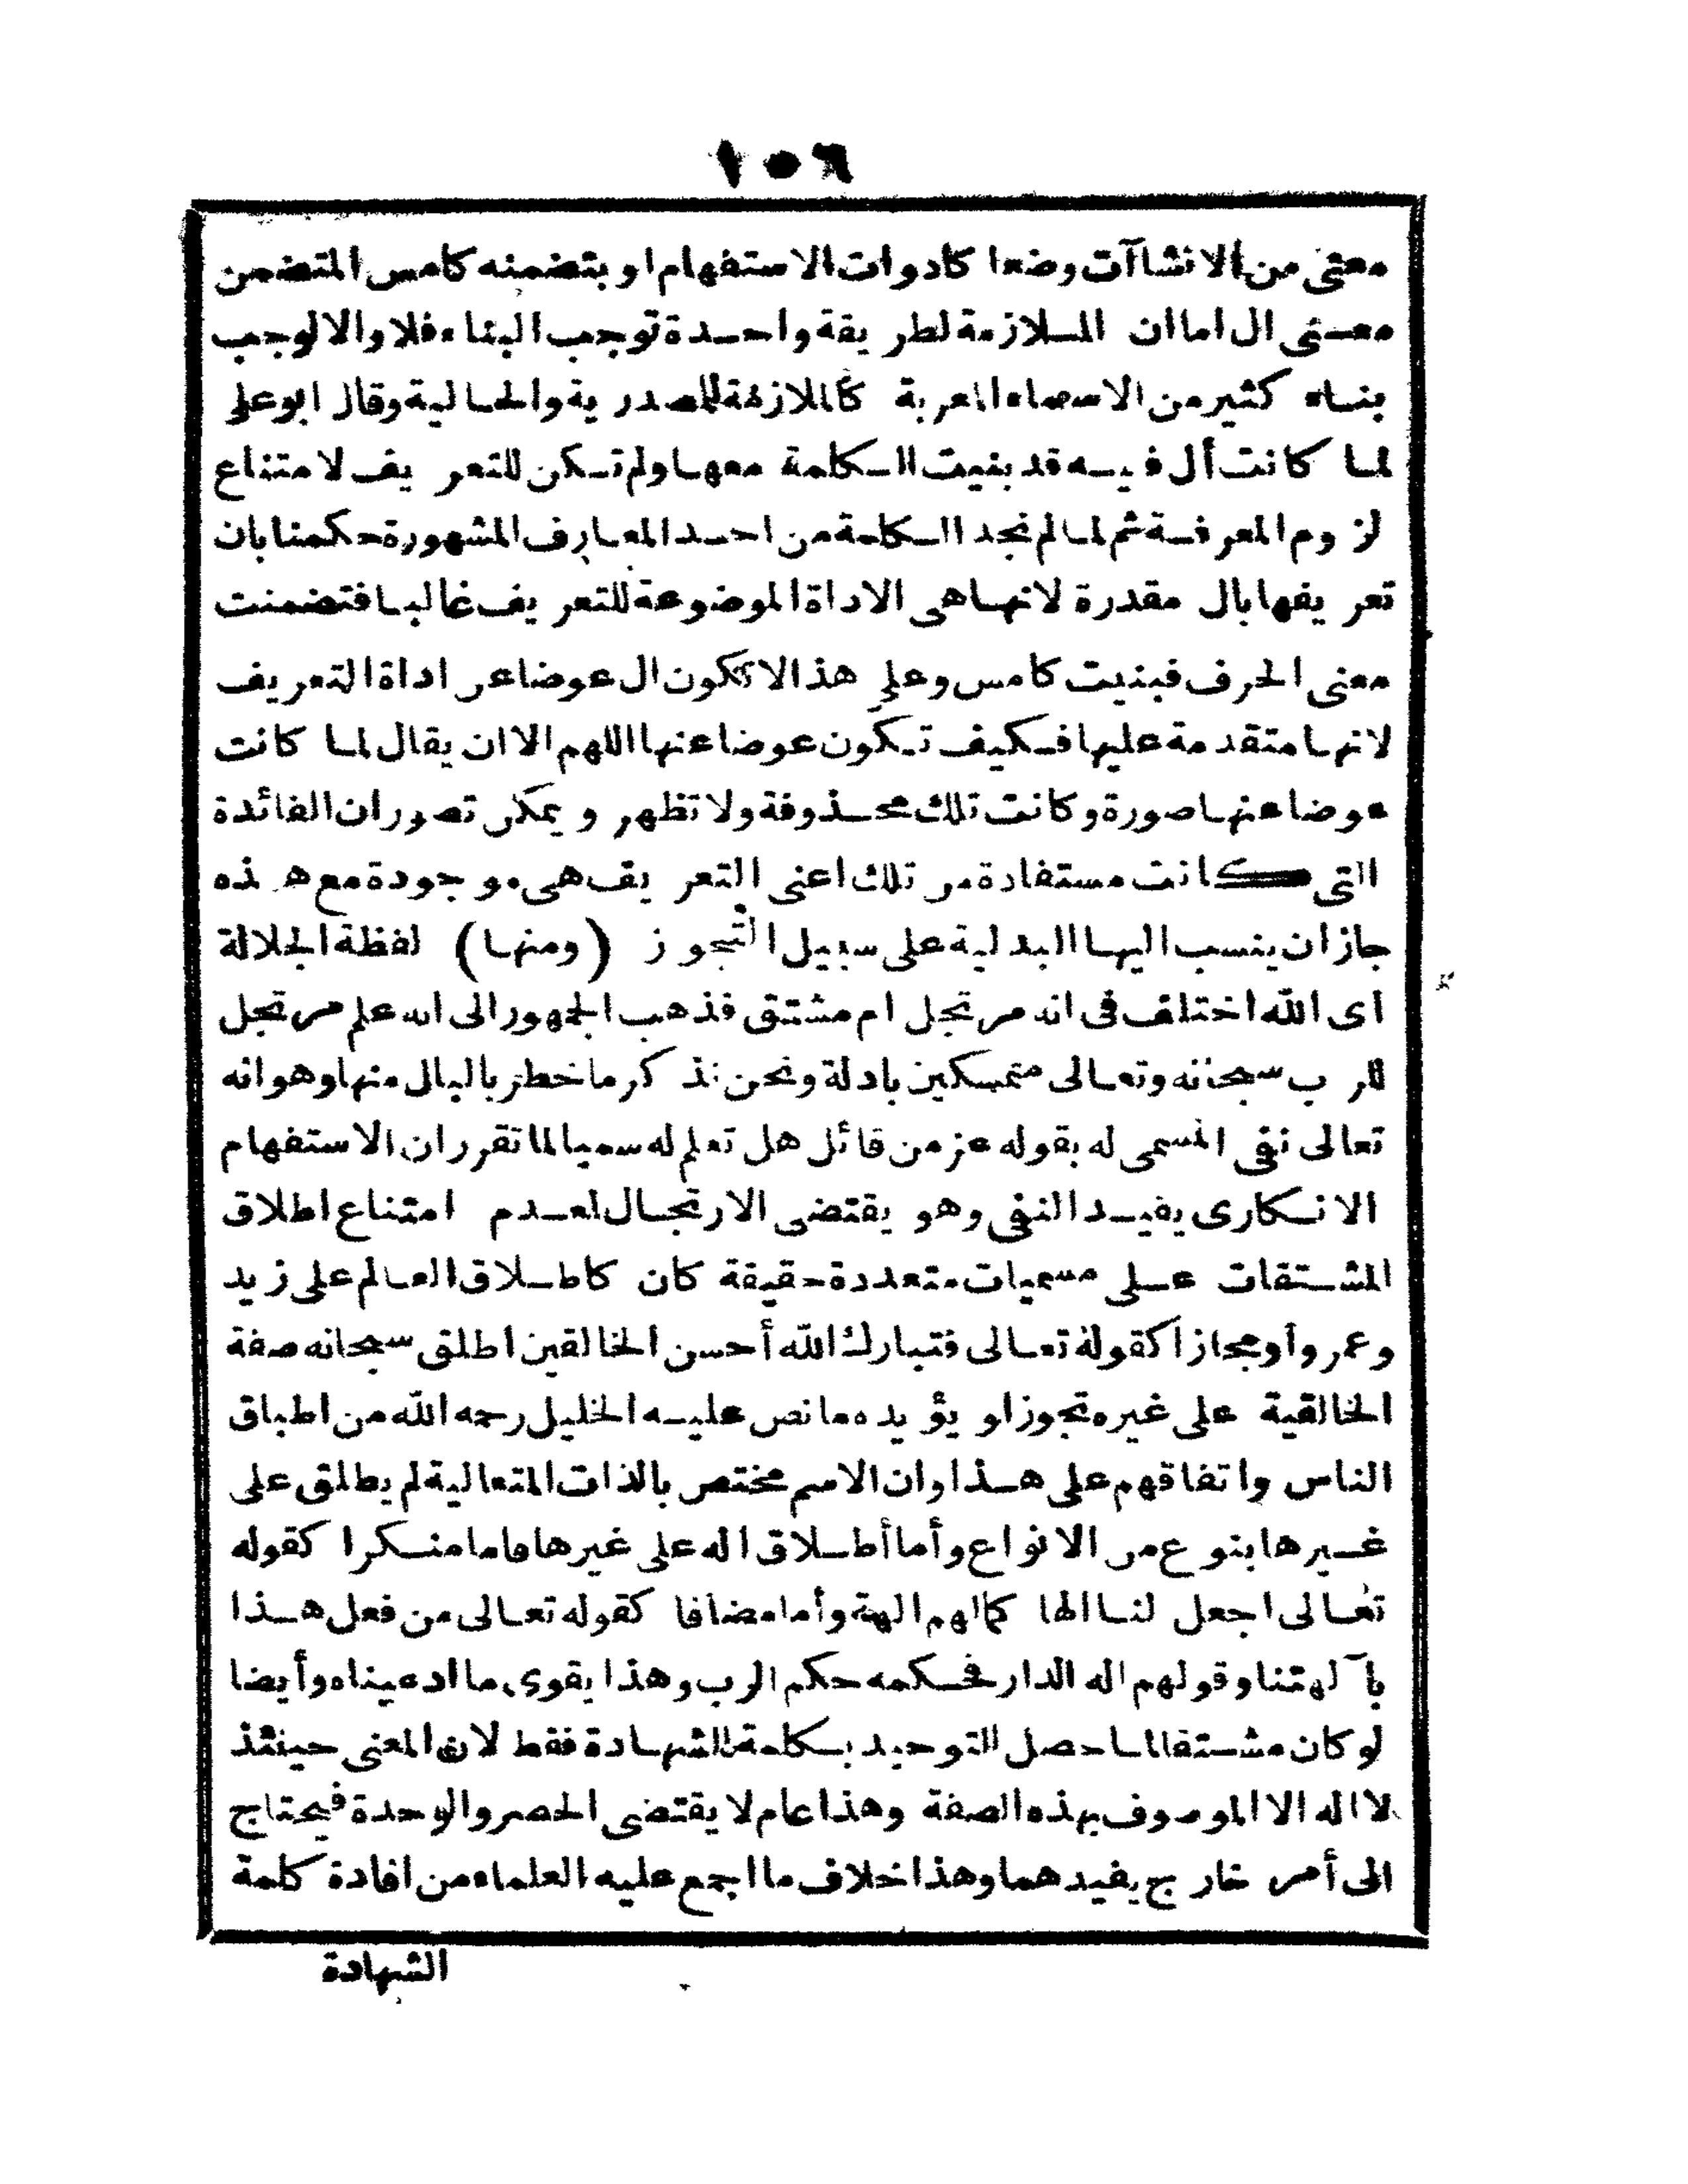 ١٥٦
معنى من الانشاآت وضعا كادوات الاستفهام او بتضمنه كامس المتضمن
معنى ال اما ان الملازمة لطريقة واحدة توجب البناء فلا والا لوجب
بناء كثير من الاسماء المعربة كالملازمة للمصدرية والحالية وقال ابو على
لما كانت أل فيه قد بنيت الكلمة معها ولم تكن للتعريف لامتناع
لزوم المعرفة ثم لما لم نجد الكلمة من احد المعارف المشهورة حكمنا بان
تعريفها بال مقدرة لانها هى الاداة الموضوعة للتعريف غالبا فتضمنت
معنى الحرف فبنيت كامس وعلى هذا لا تكون ال عوضا عن اداة التعريف
لانها متقدمة عليها فكيف تكون عوضا عنها اللهم الا ان يقال لما كانت
عوضا عنها صورة وكانت تلك محذوفة ولا تظهر ويمكن تصور ان الفائدة
التى كانت مستفادة من تلك اعنى التعريف هى موجودة مع هذه
جاز ان ينسب اليها البدلية على سبيل التجوز (ومنها) لفظة الجلالة
اى الله اختلف فى انه مرتجل ام مشتق فذهب الجمهور الى انه علم مرتجل
للرب سبحانه وتعالى متمسكين بادلة ونحن نذكر ما خطر بالبال منها وهو انه
تعالى نفى المسمى له بقوله عز من قائل هل تعلم له سميا لما تقرر ان الاستفهام
الانكارى يفيد النفى وهو يقتضى الارتجال لعدم امتناع اطلاق
المشتقات على مسميات متعددة حقيقة كان كاطلاق العالم على زيد
وعمرو أو مجازا كقوله تعالى فتبارك الله أحسن الخالقين اطلق سبحانه صفة
الخالقية على غيره تجوزا ويؤيده ما نص عليه الخليل رحمه الله من اطباق
الناس واتفاقهم على هذا وان الاسم مختص بالذات المتعالية لم يطلق على
غيرها بنوع من الانواع وأما أطلاق اله على غيرها فاما منكرا كقوله
تعالى اجعل لنا الها كما لهم الهة وأما مضافا كقوله تعالى من فعل هذا
بآلهتنا وقولهم اله الدار فحكمه حكم الرب وهذا يقوى ما ادعيناه وأيضا
لو كان مشتقا لما حصل التوحيد بكلمة الشهادة فقط لان المعنى حينئذ
لا اله الا الموصوف بهذه الصفة وهذا عام لا يقتضى الحصر والوحدة فيحتاج
الى أمر خارج يفيدهما وهذا خلاف ما اجمع عليه العلماء من افادة كلمة
الشهادة